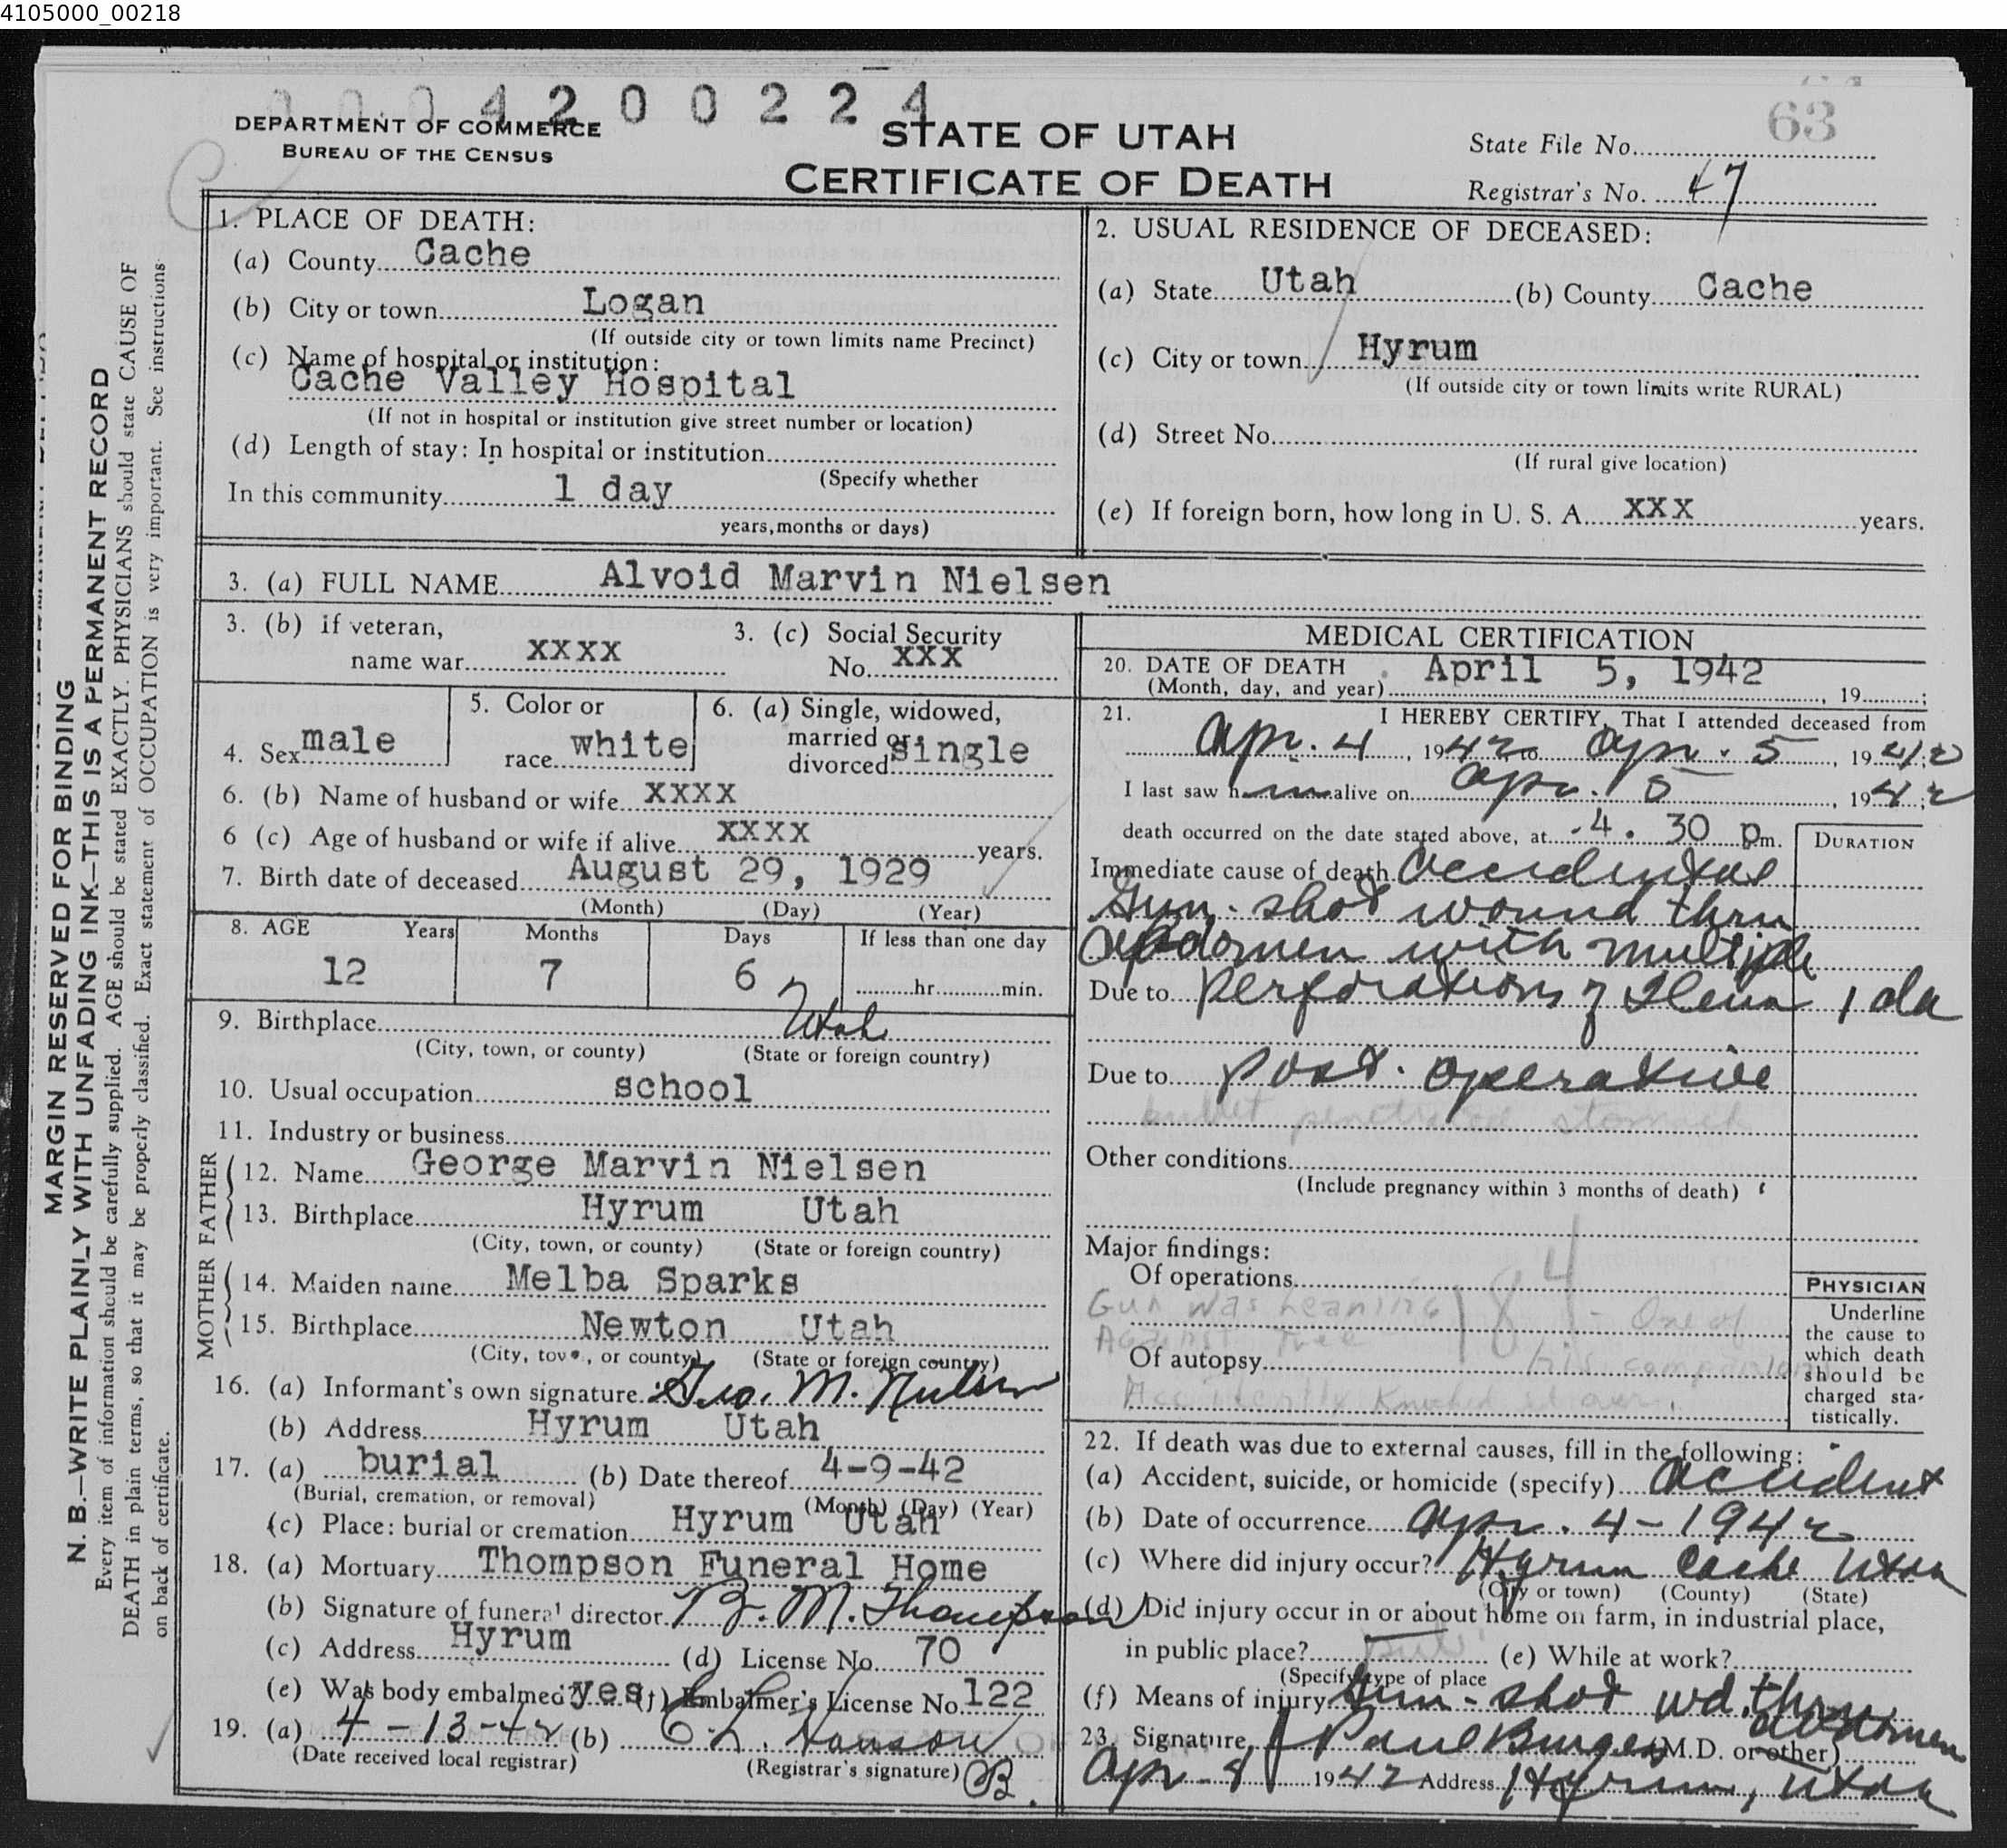 4105000_00218
0004200224
DEPARTMENT OF COMMERCE
BUREAU OF THE CENSUS
STATE OF UTAH
CERTIFICATE OF DEATH
63
State File No.
Registrar's No. 47
MARGIN RESERVED FOR BINDING
N. B.—WRITE PLAINLY WITH UNFADING INK—THIS IS A PERMANENT RECORD
Every item of information should be carefully supplied. AGE should be stated EXACTLY. PHYSICIANS should state CAUSE OF
DEATH in plain terms, so that it may be properly classified. Exact statement of OCCUPATION is very important. See instructions
on back of certificate.
1. PLACE OF DEATH:
(a) County Cache
(b) City or town Logan
(If outside city or town limits name Precinct)
(c) Name of hospital or institution:
Cache Valley Hospital
(If not in hospital or institution give street number or location)
(d) Length of stay: In hospital or institution
(Specify whether
In this community 1 day
years, months or days)
2. USUAL RESIDENCE OF DECEASED:
(a) State Utah (b) County Cache
(c) City or town Hyrum
(If outside city or town limits write RURAL)
(d) Street No.
(If rural give location)
(e) If foreign born, how long in U. S. A. XXX years.
3. (a) FULL NAME Alvoid Marvin Nielsen
3. (b) If veteran,
name war XXXX
3. (c) Social Security
No. XXX
4. Sex male
5. Color or
race white
6. (a) Single, widowed,
married or
divorced single
6. (b) Name of husband or wife XXXX
6 (c) Age of husband or wife if alive XXXX years.
7. Birth date of deceased August 29, 1929
(Month) (Day) (Year)
8. AGE Years Months Days If less than one day
12 7 6 hr. min.
9. Birthplace Utah
(City, town, or county) (State or foreign country)
10. Usual occupation school
11. Industry or business
FATHER
12. Name George Marvin Nielsen
13. Birthplace Hyrum Utah
(City, town, or county) (State or foreign country)
MOTHER
14. Maiden name Melba Sparks
15. Birthplace Newton Utah
(City, town, or county) (State or foreign country)
16. (a) Informant's own signature Geo. M. Nielsen
(b) Address Hyrum Utah
17. (a) burial (b) Date thereof 4-9-42
(Burial, cremation, or removal) (Month) (Day) (Year)
(c) Place: burial or cremation Hyrum Utah
18. (a) Mortuary Thompson Funeral Home
(b) Signature of funeral director B. M. Thompson
(c) Address Hyrum (d) License No. 70
(e) Was body embalmed? yes (f) Embalmer's License No. 122
19. (a) 4-13-42 (b) C. L. Hanson
(Date received local registrar) (Registrar's signature) B.
MEDICAL CERTIFICATION
20. DATE OF DEATH April 5, 1942
(Month, day, and year) , 19 ;
21. I HEREBY CERTIFY, That I attended deceased from
Apr. 4, 1942 to Apr. 5, 1942;
I last saw him alive on Apr. 5, 1942;
death occurred on the date stated above, at 4.30 pm.
DURATION
Immediate cause of death accidental
Gun-shot wound thru
abdomen with multiple
Due to perforations of Ileum 1 da
Due to post-operative
bullet penetrated stomach
Other conditions
(Include pregnancy within 3 months of death)
Major findings:
Of operations
Gun was leaning 184 - One of
Against tree
Of autopsy his companions
Accidently knocked it over.
PHYSICIAN
Underline
the cause to
which death
should be
charged sta-
tistically.
22. If death was due to external causes, fill in the following:
(a) Accident, suicide, or homicide (specify) accident
(b) Date of occurrence Apr. 4-1942
(c) Where did injury occur? Hyrum Cache Utah
(City or town) (County) (State)
(d) Did injury occur in or about home on farm, in industrial place,
in public place? (e) While at work?
(Specify type of place
(f) Means of injury Gun-shot wd. thru
abdomen
23. Signature Paul Burgess (M.D. or other)
Apr-8 1942 Address Hyrum, Utah